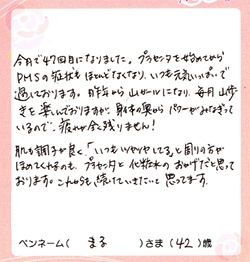 今月で47回目になりました。プラセンタを始めてから
PMSの症状もほとんどなくなり、いつも元気いっぱいで
過しております。昨年から山ガールになり、毎月山歩
きを楽しんでおりますが、身体の奥からパワーがみなぎって
いるので、疲れが全く残りません！
肌も調子が良く「いつもツヤツヤしてる」と周りの方が
ほめてくれるのも、プラセンタと化粧水のおかげだと思って
おります。これからも続けていきたいと思ってます。
ペンネーム( まる )さま(42)歳